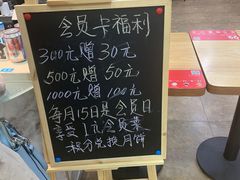 会员卡福利
300元赠30元
500元赠50元
1000元赠100元
每月15日是会员日
享受1元会员菜
积分兑换月饼